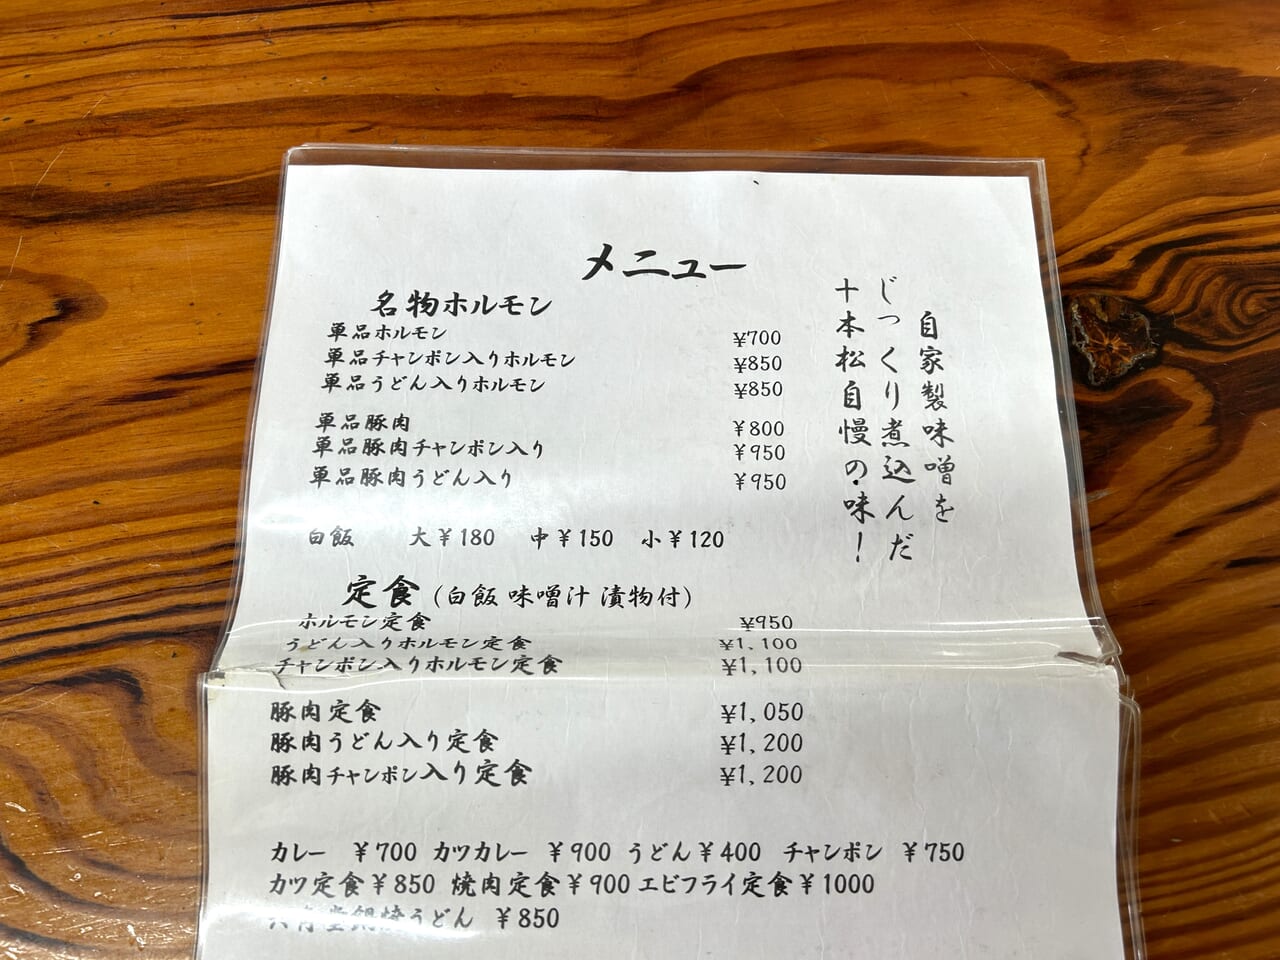 メニュー
名物ホルモン
単品ホルモン ¥700
単品チャンポン入りホルモン ¥850
単品うどん入りホルモン ¥850
単品豚肉 ¥800
単品豚肉チャンポン入り ¥950
単品豚肉うどん入り ¥950
白飯 大¥180 中¥150 小¥120
自家製味噌を
じっくり煮込んだ
十本松自慢の味!
定食(白飯 味噌汁 漬物付)
ホルモン定食 ¥950
うどん入りホルモン定食 ¥1,100
チャンポン入りホルモン定食 ¥1,100
豚肉定食 ¥1,050
豚肉うどん入り定食 ¥1,200
豚肉チャンポン入り定食 ¥1,200
カレー ¥700 カツカレー ¥900 うどん¥400 チャンポン ¥750
カツ定食¥850 焼肉定食¥900 エビフライ定食¥1000
鍋焼うどん ¥850